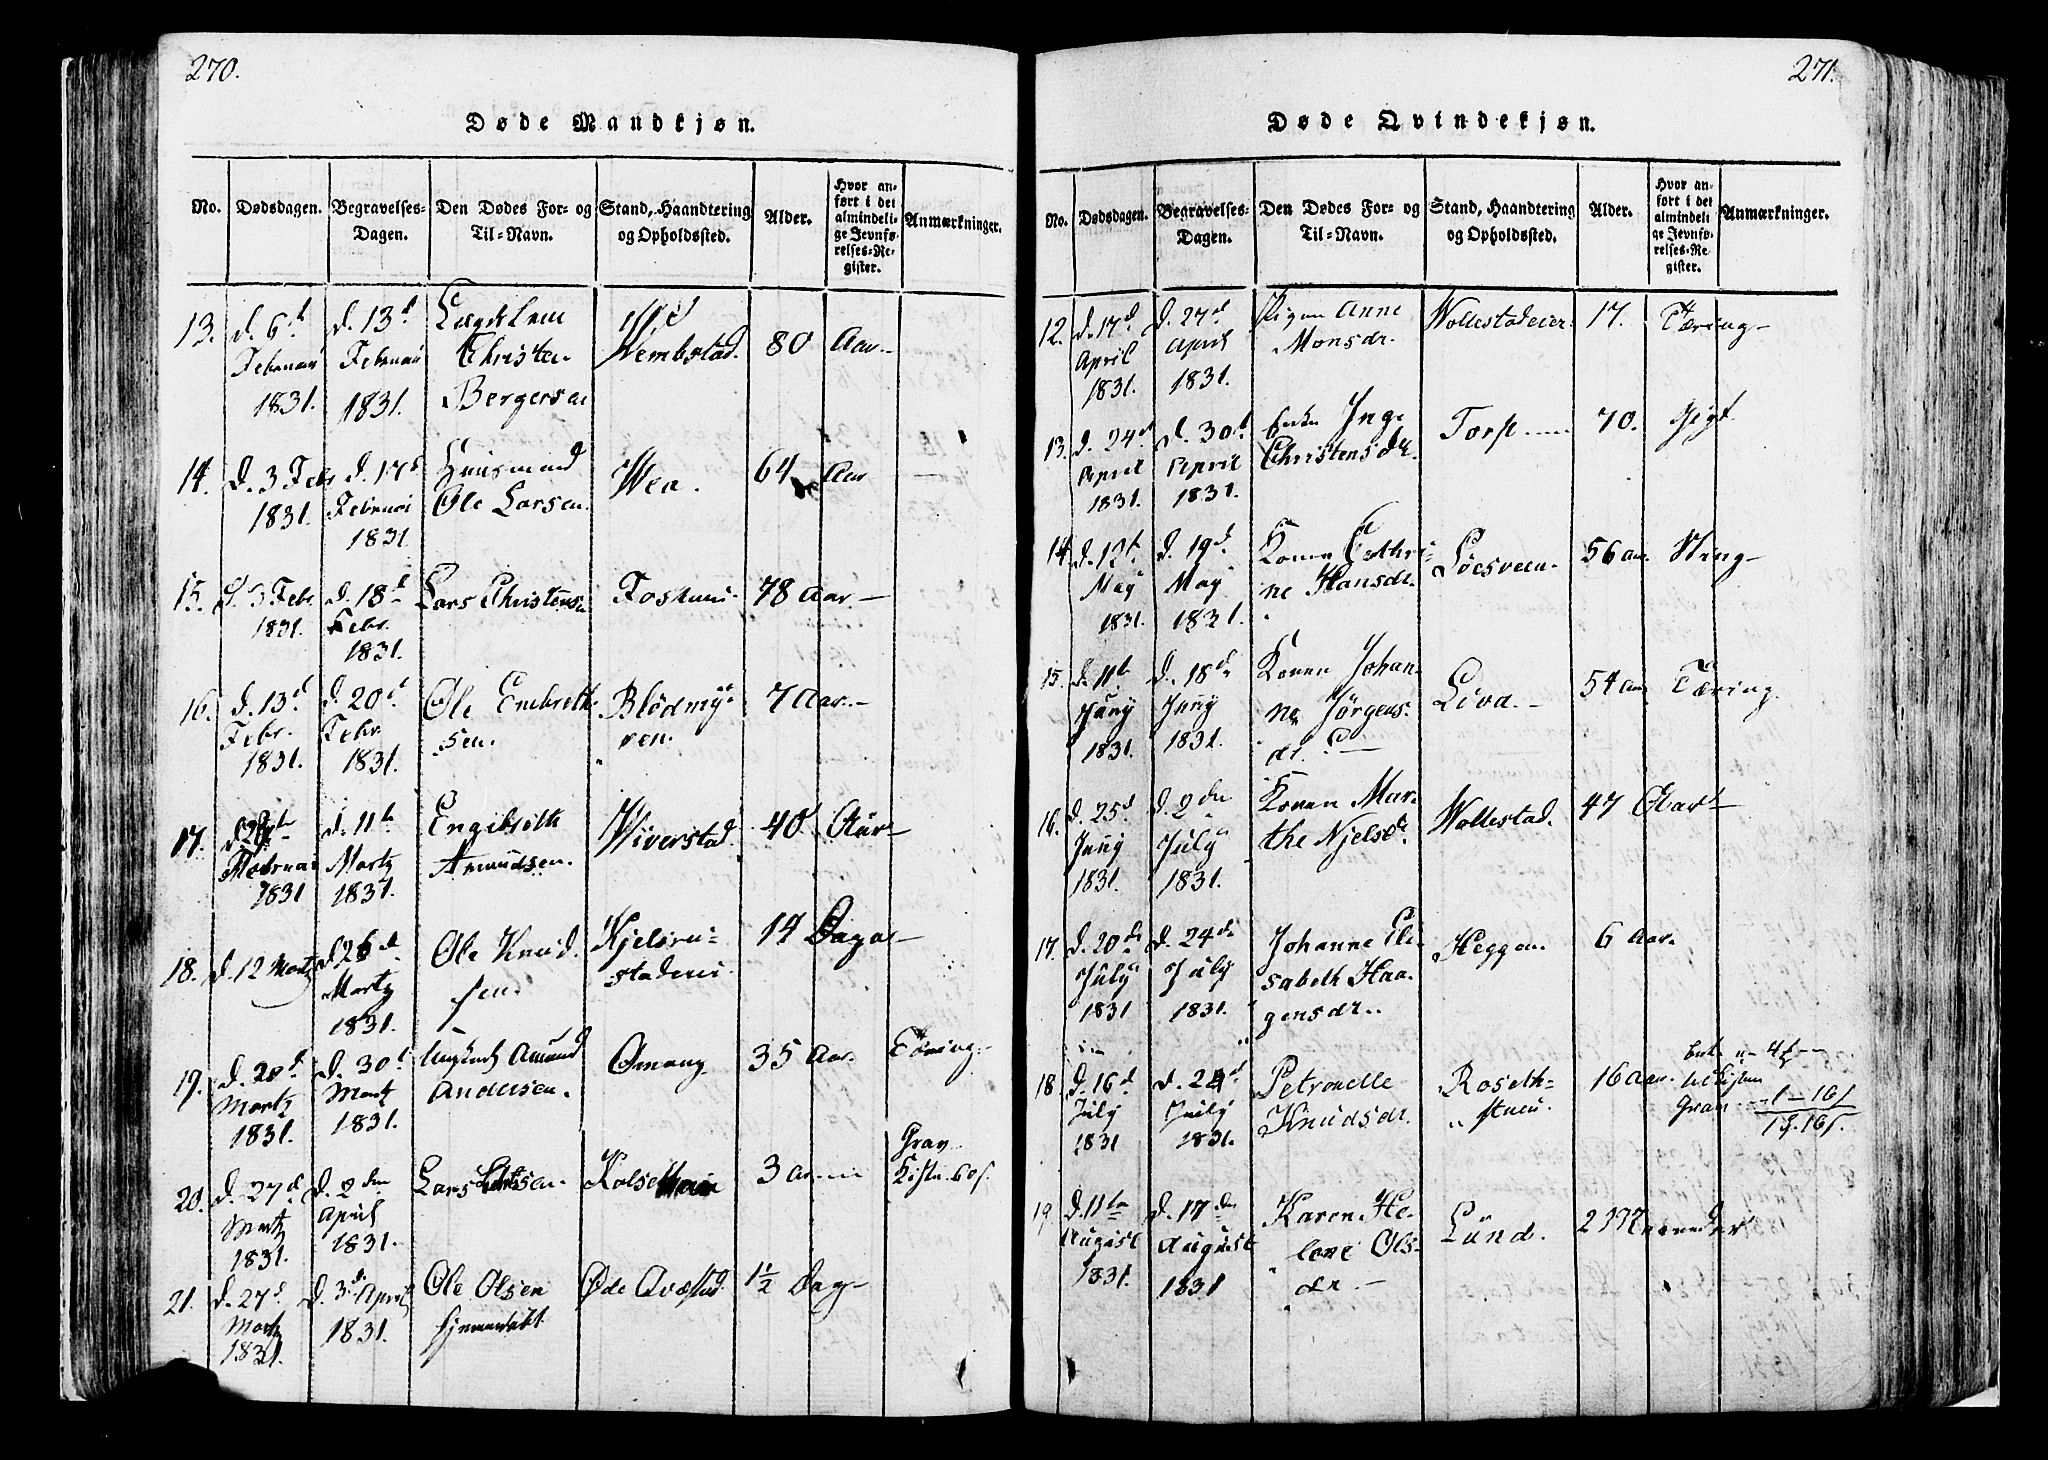 270.
Døde Mandkjøn.
No. Dødsdagen. Begravelses-Dagen. Den Dødes For- og Til-Navn. Stand, Haandtering og Opholdssted. Alder. Hvor anført i det almindelige Jevnførelses-Register. Anmærkninger.
13. d. 6te Februar 1831. d. 13d Februar 1831. Lægdslem Christen Bergersen Wembstad. 80 Aar
14. d. 3 Febr 1831. d. 17d Februar 1831 Huusmand Ole Larsen. Wea. 64 Aar
15. d. 3 Febr 1831. d. 18d Febr. 1831. Lars Christens. 78 Aar.
16. d. 13d Febr. 1831. d. 20d Febr. 1831. Ole Embreth-sen. Blødmy-ren. 7 Aar.
17. Februar 1831 d. 11te Martz 1831. Engebreth Amundsen. Wiverstad. 40 Aar
18. d. 12 Martz d. 26d Martz 1831. Ole Knud-sen. 14 Dage
19. d. 20d Martz 1831. d. 30d Martz 1831. Amund Andersen. Omang. 35 Aar. Tæring.
20. d. 27d Martz 1831. d. 2den April 1831. Lars 3 Aar Grav Kiste 60 s.
21. d. 27d Martz 1831. d. 3d April 1831. Ole Olsen hjemmedøbt Øde Qvæstad. 1½ Dag
271.
Døde Qvindekjøn.
No. Dødsdagen. Begravelses-Dagen. Den Dødes For- og Til-Navn. Stand, Haandtering og Opholdssted. Alder. Hvor anført i det almindelige Jevnførelses-Register. Anmærkninger.
12. d. 17d April 1831. d. 27d April 1831. Pigen Anne Monsdr. Wollestadeier. 17. Tæring
13. d. 24d April 1831. d. 30d April 1831. Enke Inge Christensdr. Torp. 70. Gigt
14. d. 12te May 1831. d. 19d May 1831. Konen Cathri-ne Hansdr. Løesveen. 56 Aar. Sting
15. d. 11te Juny 1831. d. 18de Juny 1831. Konen Johan-ne Jørgens-dr. Liva. 54 Aar Tæring.
16. d. 25d Juny 1831. d. 2den July 1831. Konen Mar-the Njelsdr. Wollestad. 47 Aar
17. d. 20de July 1831 d. 24de July 1831. Johanne Eli-sabeth Haa-gensdr. Heggen. 6 Aar.
18. d. 16d July 1831 d. 24d July 1831. Petronelle Knudsdr. Roseth- 16 Aar. Grav 1 – 16 s
19 d. 11te August 1831. d. 17den August 1831 Karen He-lene Ols-dr. Lund. 2 Maaneder